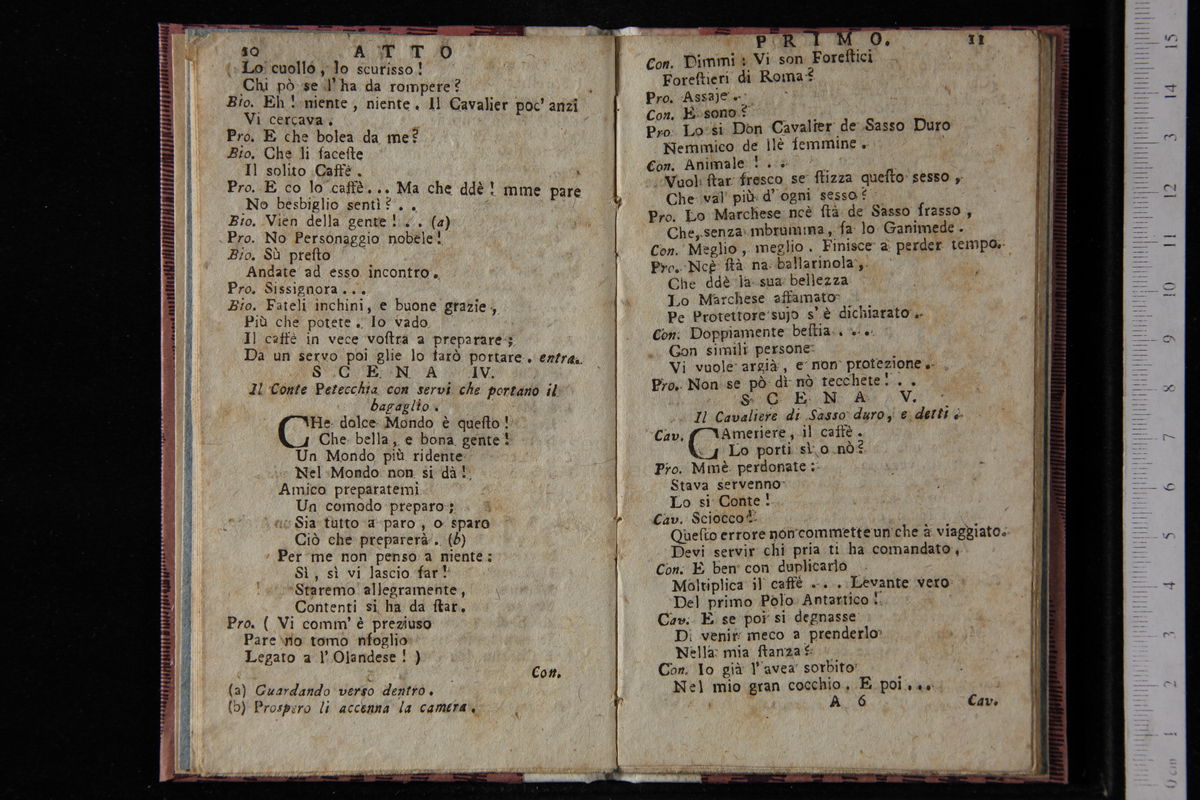 10 ATTO
Lo cuollo, lo scurisso!
Chi pò se l'ha da rompere?
Bio. Eh! niente, niente. Il Cavalier poc' anzi
Vi cercava.
Pro. E che bolea da me?
Bio. Che li faceſte
Il solito Caffè.
Pro. E co lo caffè... Ma che ddè! mme pare
No besbiglio sentì? . .
Bio. Vien della gente! . . (a)
Pro. No Personaggio nobele!
Bio. Sù preſto
Andate ad esso incontro.
Pro. Sissignora...
Bio. Fateli inchini, e buone grazie,
Più che potete. Io vado
Il caffè in vece voſtra a preparare;
Da un servo poi glie lo farò portare. entra.
SCENA IV.
Il Conte Petecchia con servi che portano il
bagaglio.
CHe dolce Mondo è queſto!
Che bella, e bona gente!
Un Mondo più ridente
Nel Mondo non si dà!
Amico preparatemi
Un comodo preparo;
Sia tutto a paro, o sparo
Ciò che preparerà. (b)
Per me non penso a niente:
Sì, sì vi lascio far!
Staremo allegramente,
Contenti si ha da ſtar.
Pro. ( Vi comm' è preziuso
Pare no tomo nfoglio
Legato a l'Olandese! )
Con.
(a) Guardando verso dentro.
(b) Prospero li accenna la camera.
PRIMO. 11
Con. Dimmi: Vi son Foreſtici
Foreſtieri di Roma?
Pro. Assaje.
Con. E sono?
Pro Lo si Don Cavalier de Sasso Duro
Nemmico de llè femmine.
Con. Animale! . .
Vuol ſtar fresco se ſtizza queſto sesso,
Che val più d' ogni sesso?
Pro. Lo Marchese ncè ſtà de Sasso frasso,
Che, senza mbrumma, fa lo Ganimede.
Con. Meglio, meglio. Finisce a perder tempo.
Pro. Ncè ſtà na ballarinola,
Che ddè la sua bellezza
Lo Marchese affamato
Pe Protettore sujo s' è dichiarato.
Con. Doppiamente beſtia . . .
Con simili persone
Vi vuole argià, e non protezione.
Pro. Non se pò dì nò tecchete! . .
SCENA V.
Il Cavaliere di Sasso duro, e detti.
Cav. CAmeriere, il caffè.
Lo porti sì o nò?
Pro. Mmè perdonate:
Stava servenno
Lo si Conte!
Cav. Sciocco!
Queſto errore non commette un che à viaggiato.
Devi servir chi pria ti ha comandato,
Con. E ben con duplicarlo
Moltiplica il caffè . . . Levante vero
Del primo Polo Antartico!
Cav. E se poi si degnasse
Di venir meco a prenderlo
Nella mia ſtanza?
Con. Io già l'avea sorbito
Nel mio gran cocchio. E poi...
A 6 Cav.
15
14
13
12
11
10
9
8
7
6
5
4
3
2
1
0 cm